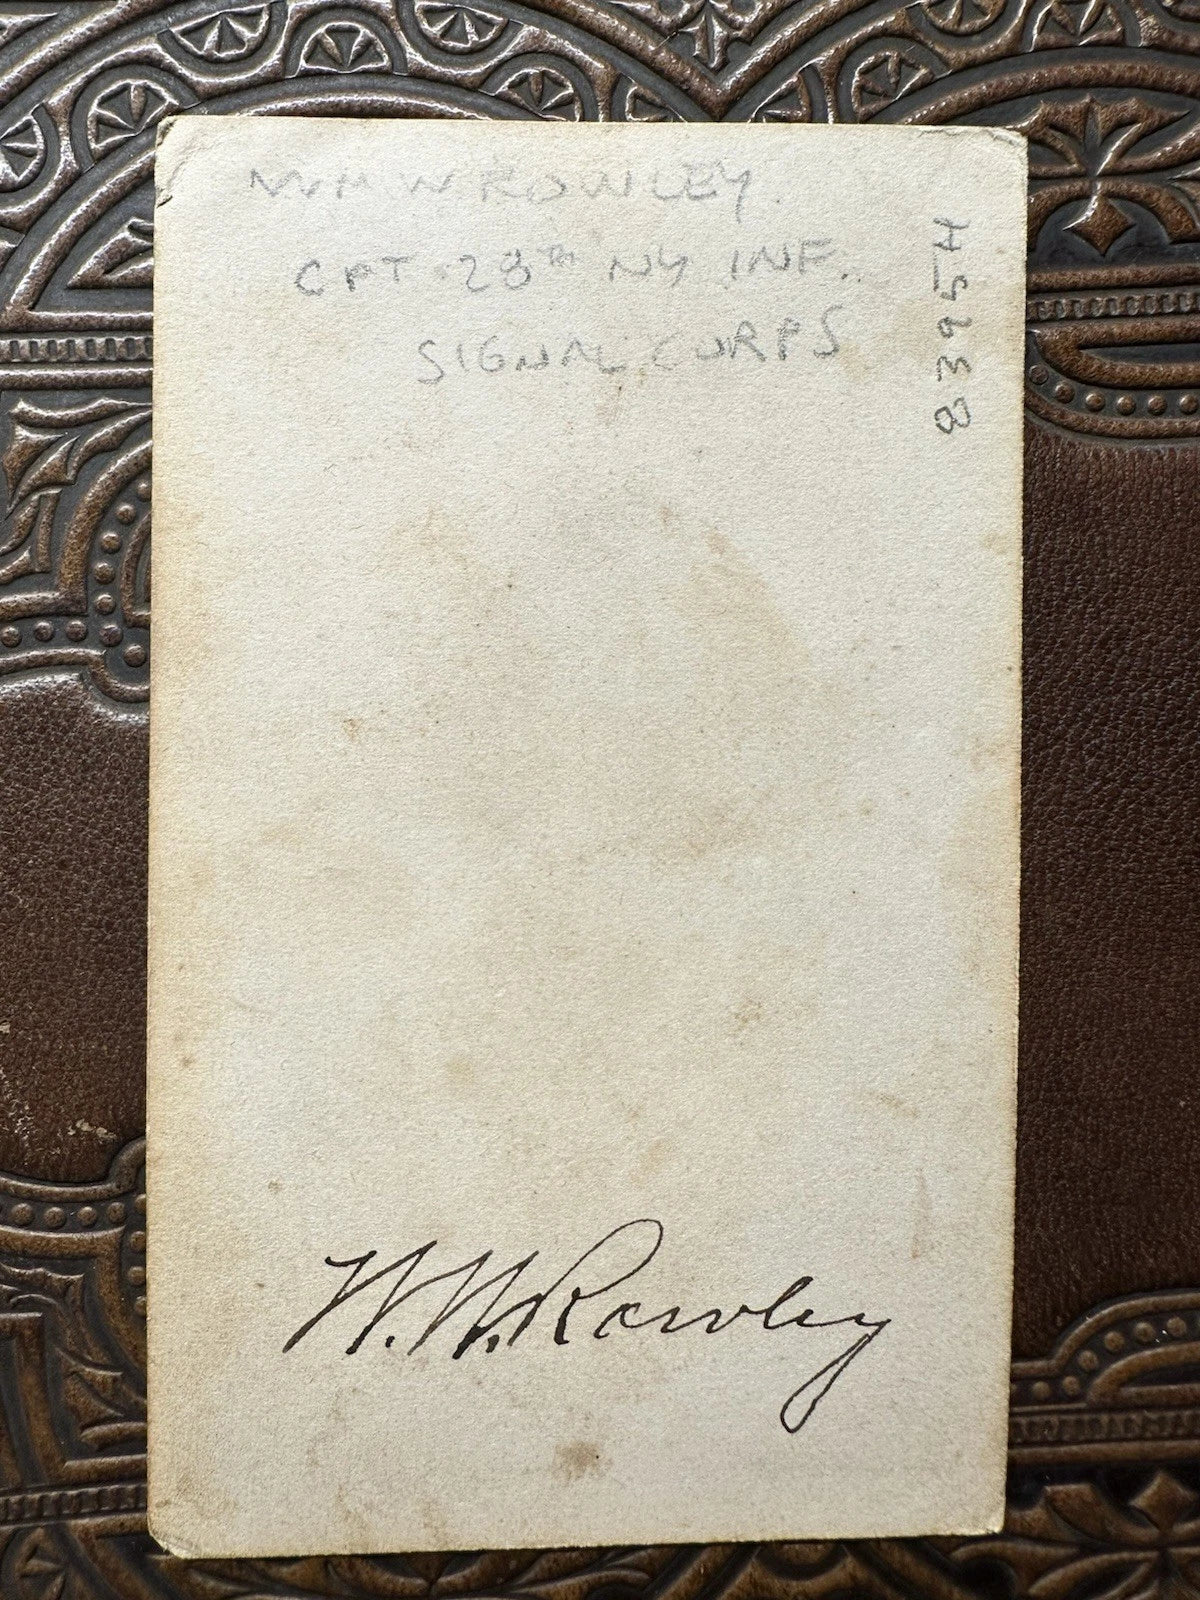 WM W ROWLEY.
CPT. 28TH NY INF.
SIGNAL CORPS
8395H
W. W. Rowley